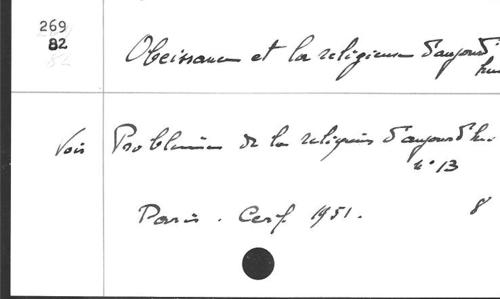 269
82
Obeissance et la religieuse d'aujourd'
hui
Voir Problèmes de la religieuse d'aujourd'hui
n° 13
Paris. Cerf. 1951. 8